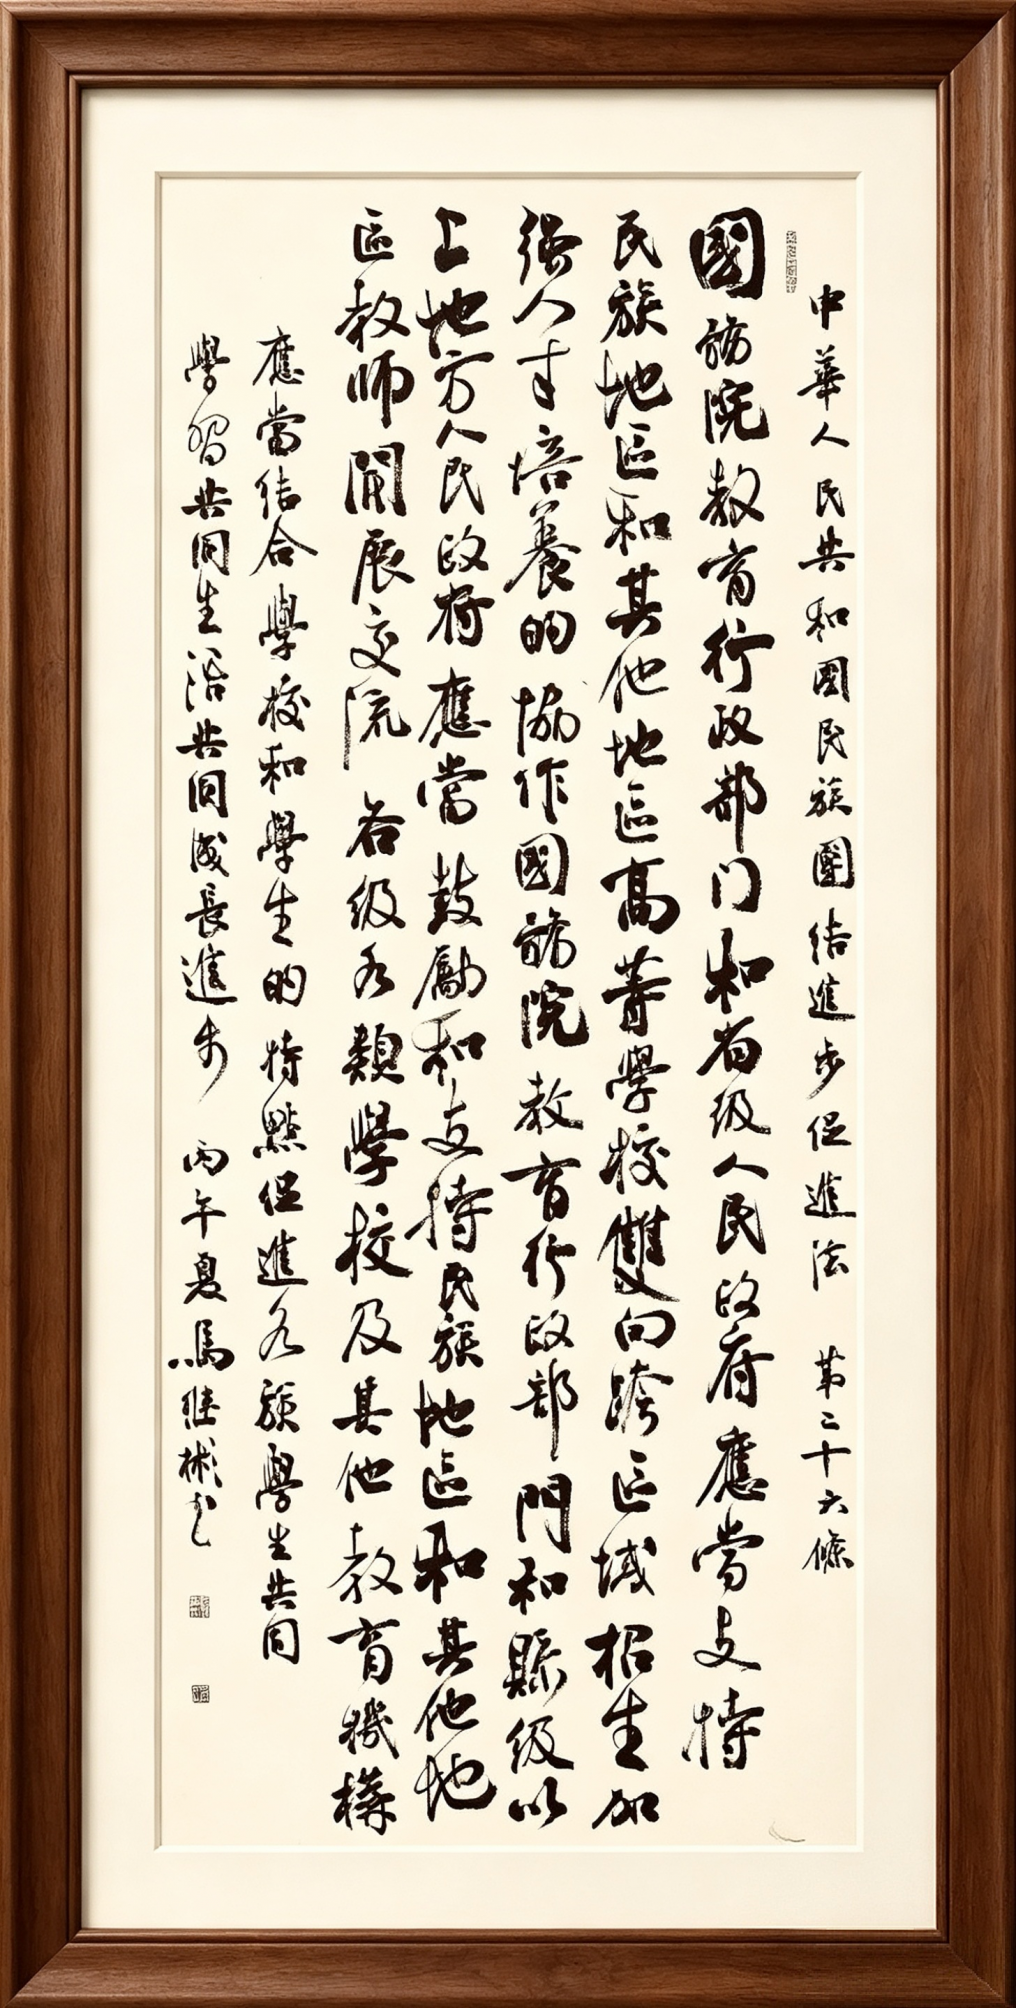 中華人民共和國民族團结進步促進法 第二十六條
國務院教育行政部门和省级人民政府應當支持
民族地區和其他地區高等學校雙向跨區域招生加
强人才培養的協作國務院教育行政部門和縣级以
上地方人民政府應當鼓勵和支持民族地區和其他地
區教师開展交流 各级各類學校及其他教育機構
應當结合學校和學生的特點促進各族學生共同
學習共同生活共同成長進步 丙午夏馬继彬书